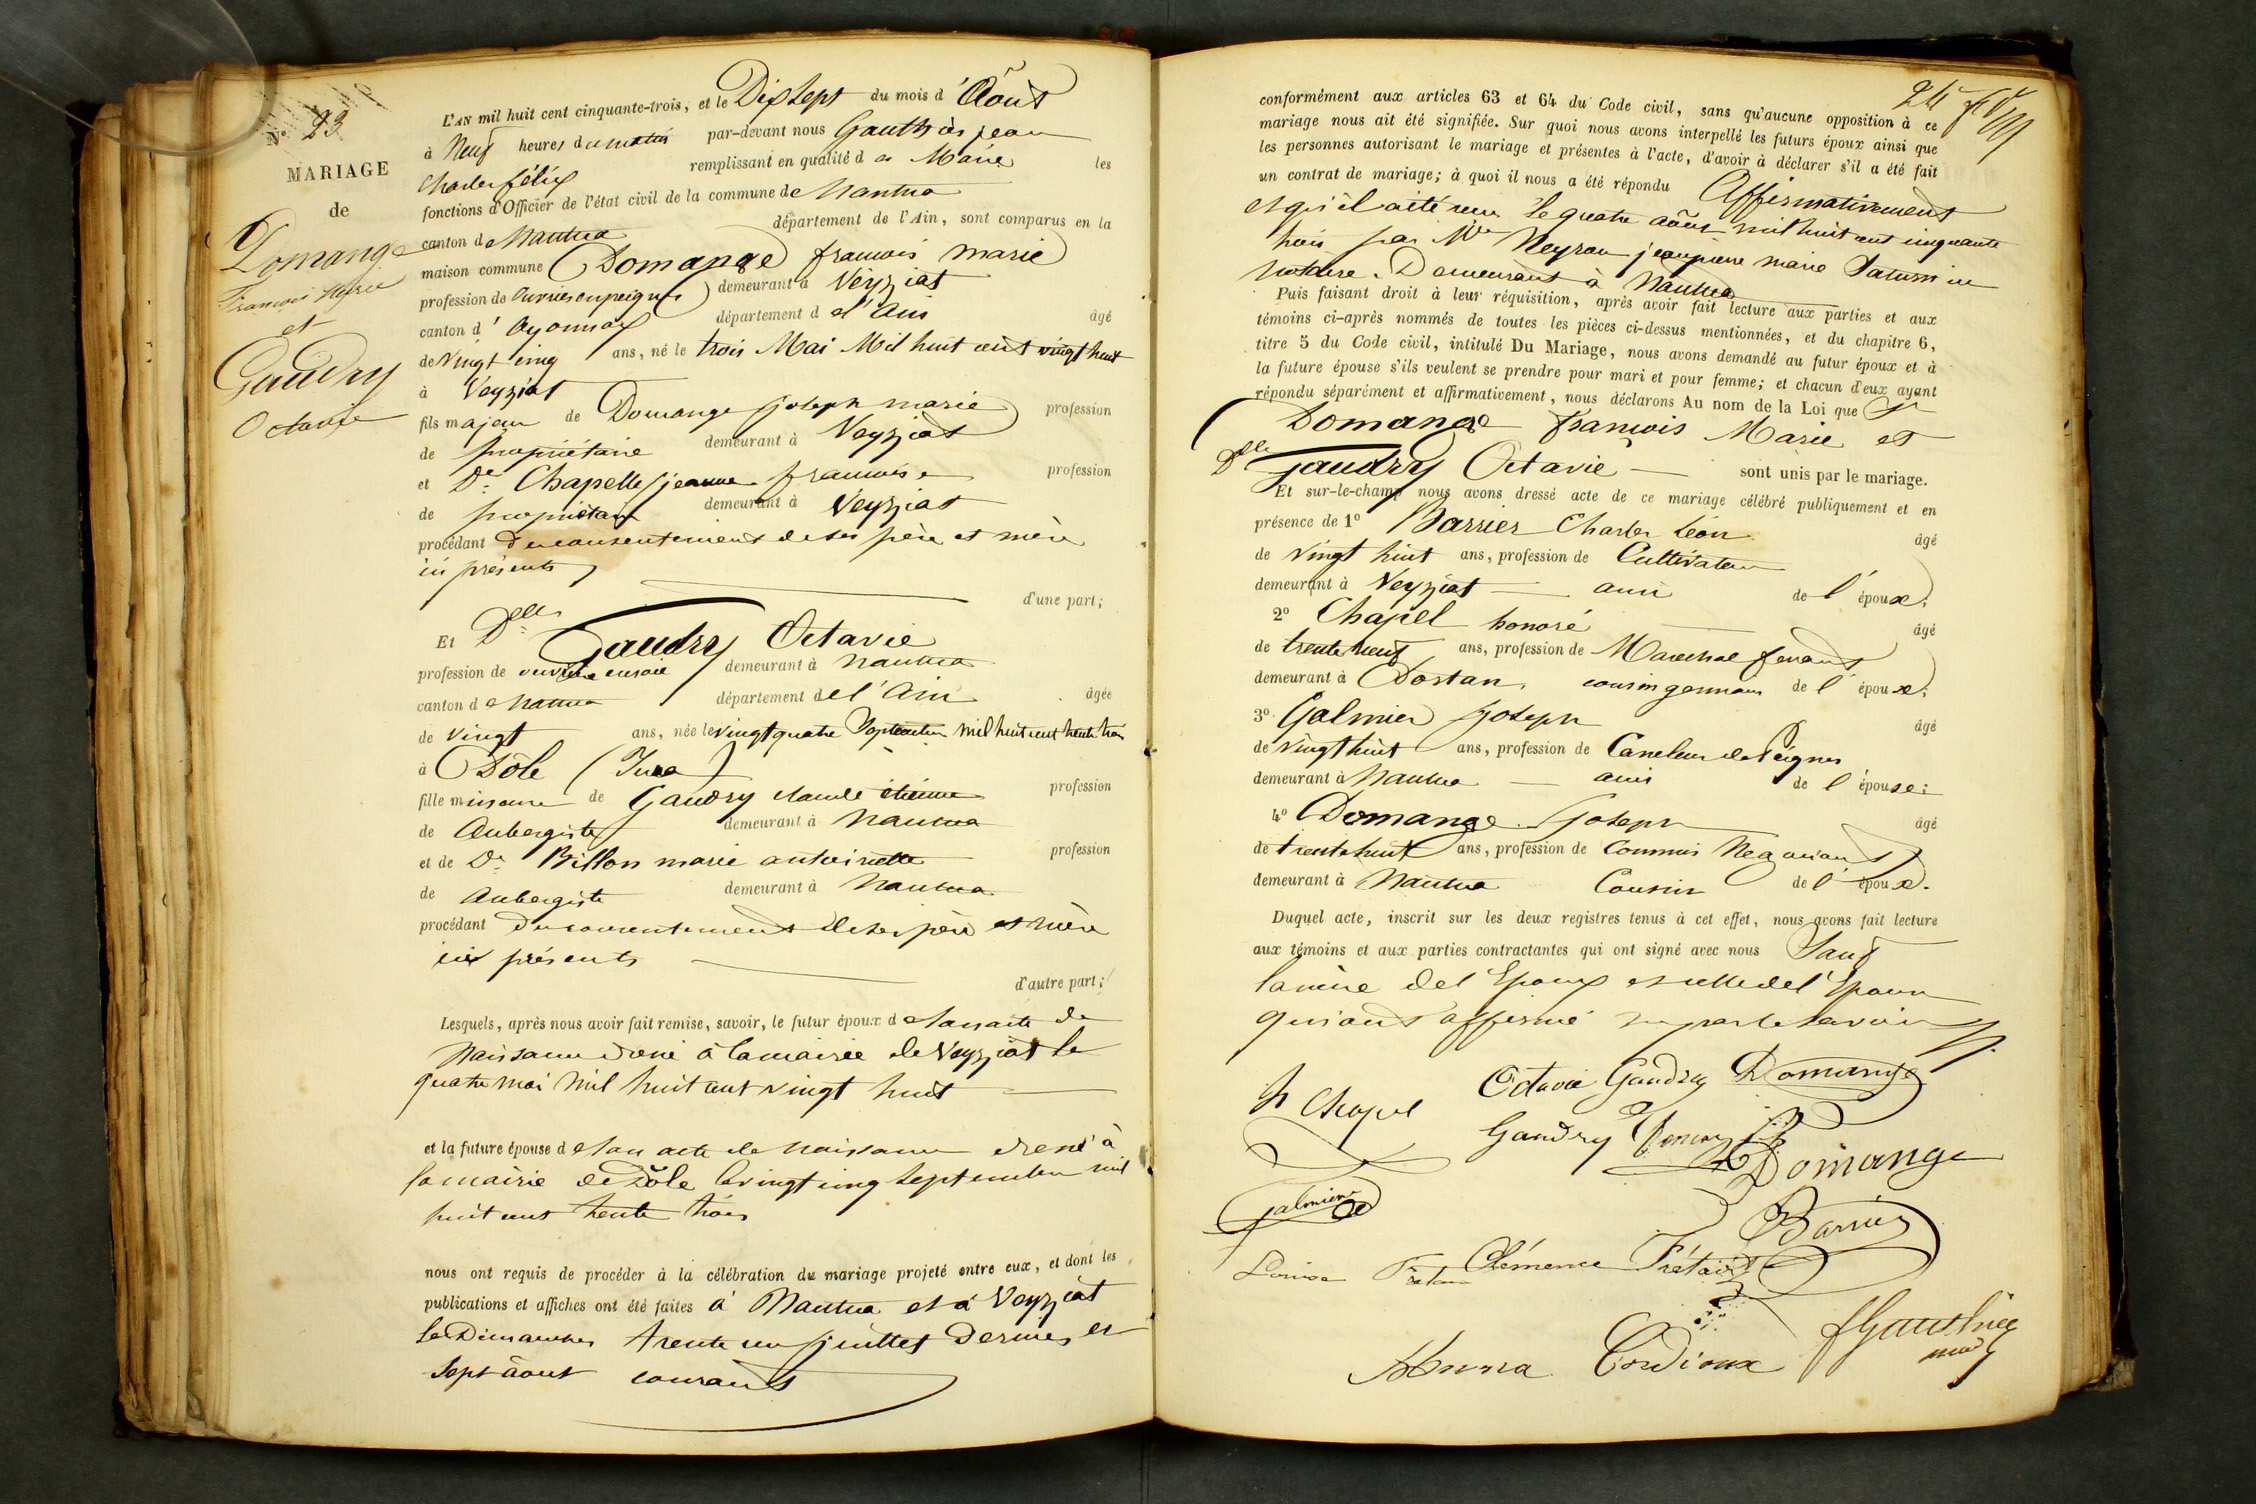 N° 23
MARIAGE
de
Domange
François Marie
et
Gaudry
Octavie
L'AN mil huit cent cinquante-trois, et le Dix Sept du mois d'Août
à Neuf heures du matin par-devant nous Gauthier jean
Charles félix remplissant en qualité de Maire les
fonctions d'Officier de l'état civil de la commune de Nantua
canton de Nantua département de l'Ain, sont comparus en la
maison commune Domange francois marie
profession de Ouvrier en peignes demeurant à Veyziat
canton d'Oyonnax département de l'Ain âgé
de Vingt cinq ans, né le trois Mai Mil huit cent vingt huit
à Veyziat
fils majeur de Domange joseph marie profession
de propriétaire demeurant à Veyziat
et De Chapelle jeanne francoise profession
de propriétaire demeurant à Veyziat
procédant du consentement de ses père et mère
ici présents
d'une part;
Et Delle Gaudry Octavie
profession de ouvrière en soie demeurant à Nantua
canton de Nantua département de l'Ain âgée
de vingt ans, née le vingt quatre Septembre mil huit cent trente trois
à Dôle (Jura)
fille mineure de Gaudry claude étienne profession
de Aubergiste demeurant à Nantua
et de De Billon marie antoinette profession
de Aubergiste demeurant à Nantua
procédant du consentement de ses père et mère
ici présents
d'autre part;
Lesquels, après nous avoir fait remise, savoir, le futur époux de son acte de
Naissance dréné à la mairie de Veyziat le
quatre mai Mil huit cent vingt huit
et la future épouse de son acte de Naissance dréné à
la mairie de Dôle le vingt cinq Septembre mil
huit cent trente trois
nous ont requis de procéder à la célébration du mariage projeté entre eux, et dont les
publications et affiches ont été faites à Nantua et à Veyziat
les Dimanches trente un juillet Dernier et
Sept août courant
24
conformément aux articles 63 et 64 du Code civil, sans qu'aucune opposition à ce
mariage nous ait été signifiée. Sur quoi nous avons interpellé les futurs époux ainsi que
les personnes autorisant le mariage et présentes à l'acte, d'avoir à déclarer s'il a été fait
un contrat de mariage; à quoi il nous a été répondu Affirmativement
et qu'il a été reçu le quatre août mil huit cent cinquante
trois par Me Neyron jean pierre marie Saturnin
notaire. Demeurant à Nantua
Puis faisant droit à leur réquisition, après avoir fait lecture aux parties et aux
témoins ci-après nommés de toutes les pièces ci-dessus mentionnées, et du chapitre 6,
titre 5 du Code civil, intitulé Du Mariage, nous avons demandé au futur époux et à
la future épouse s'ils veulent se prendre pour mari et pour femme; et chacun d'eux ayant
répondu séparément et affirmativement, nous déclarons Au nom de la Loi que Sr
Domange francois Marie et
Delle Gaudry Octavie sont unis par le mariage.
Et sur-le-champ nous avons dressé acte de ce mariage célébré publiquement et en
présence de 1° Barrier Charles Léon âgé
de Vingt huit ans, profession de Cultivateur
demeurant à Veyziat ami de l'époux;
2° Chapel honoré âgé
de trente neuf ans, profession de Marechal ferrant
demeurant à Dortan cousin germain de l'époux;
3° Galmier joseph âgé
de Vingt huit ans, profession de Caneleur de Peignes
demeurant à Nantua ami de l'épouse;
4° Domange Joseph âgé
de trente huit ans, profession de Commis Negociant
demeurant à Nantua Cousin de l'époux.
Duquel acte, inscrit sur les deux registres tenus à cet effet, nous avons fait lecture
aux témoins et aux parties contractantes qui ont signé avec nous Sauf
la mère de l'Epoux et celle de l'Epouse
qui ont affirmé ne pas le savoir
h Chapel Octavie Gaudry Domange
Gaudry
Domange
Galmier
Barrier
Louise Clémence Frétaird
Anna Cordioux Gauthier